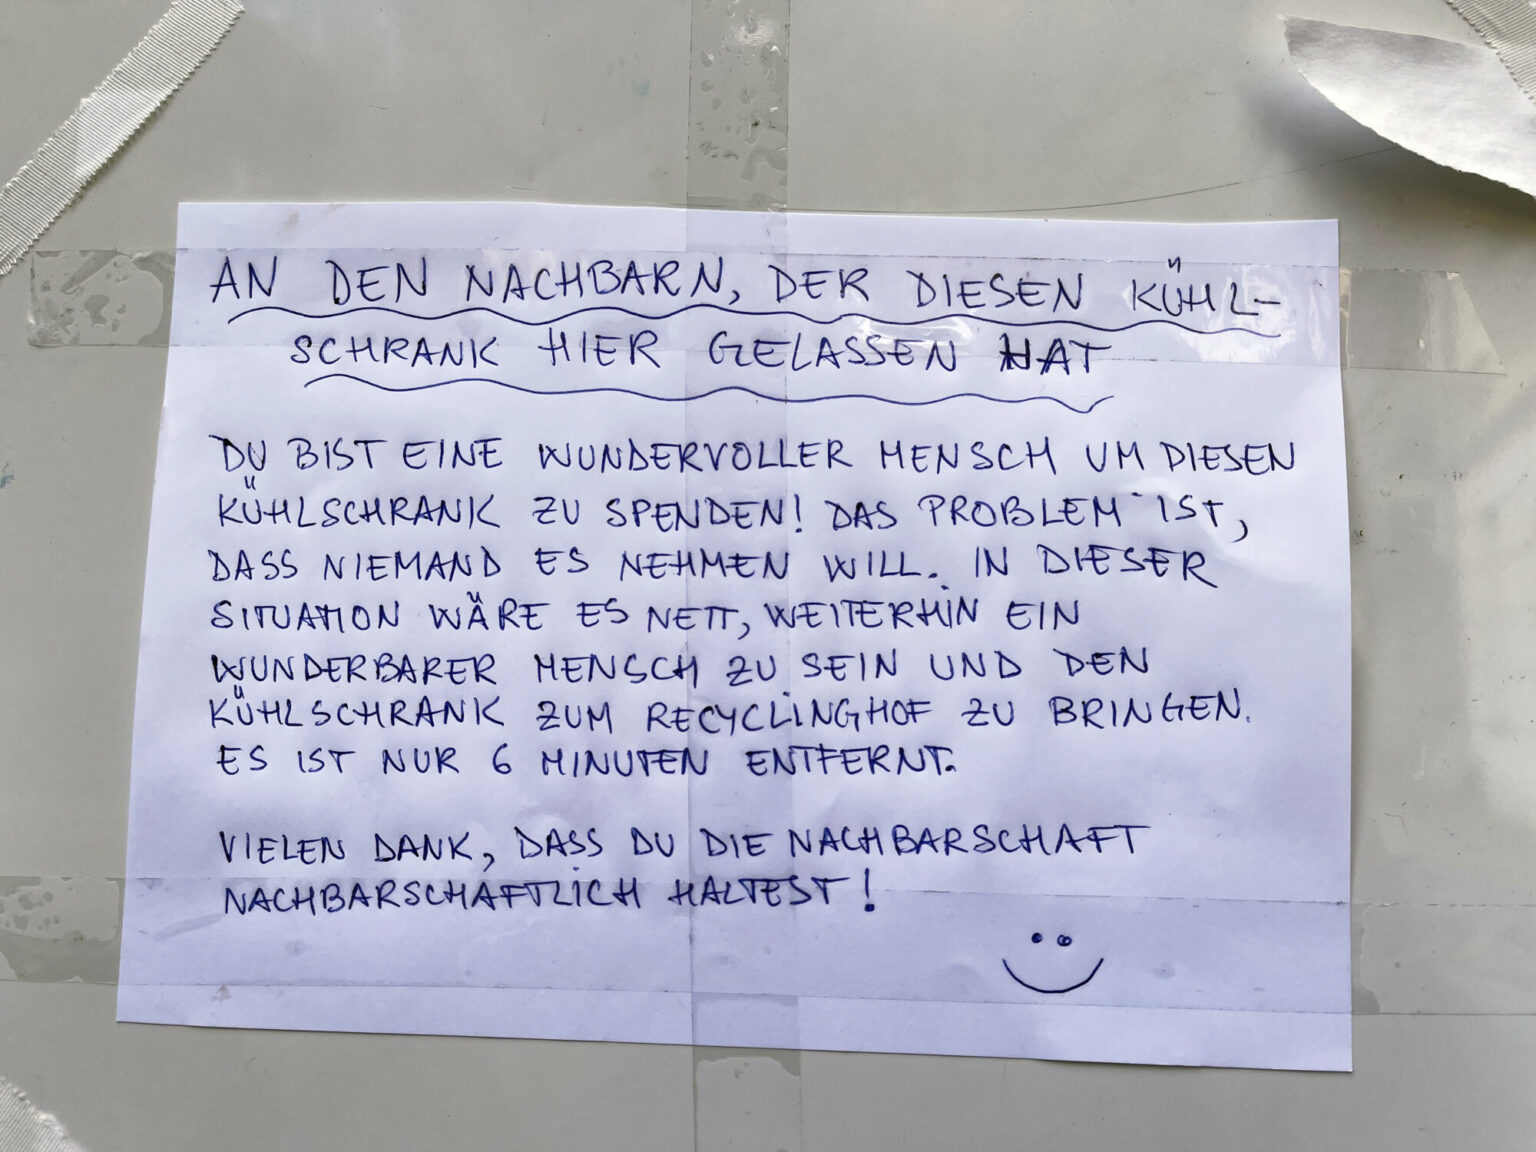 AN DEN NACHBARN, DER DIESEN KÜHL-
SCHRANK HIER GELASSEN HAT
DU BIST EINE WUNDERVOLLER MENSCH UM DIESEN
KÜHLSCHRANK ZU SPENDEN! DAS PROBLEM IST,
DASS NIEMAND ES NEHMEN WILL. IN DIESER
SITUATION WÄRE ES NETT, WEITERHIN EIN
WUNDERBARER MENSCH ZU SEIN UND DEN
KÜHLSCHRANK ZUM RECYCLINGHOF ZU BRINGEN.
ES IST NUR 6 MINUTEN ENTFERNT.
VIELEN DANK, DASS DU DIE NACHBARSCHAFT
NACHBARSCHAFTLICH HALTEST!